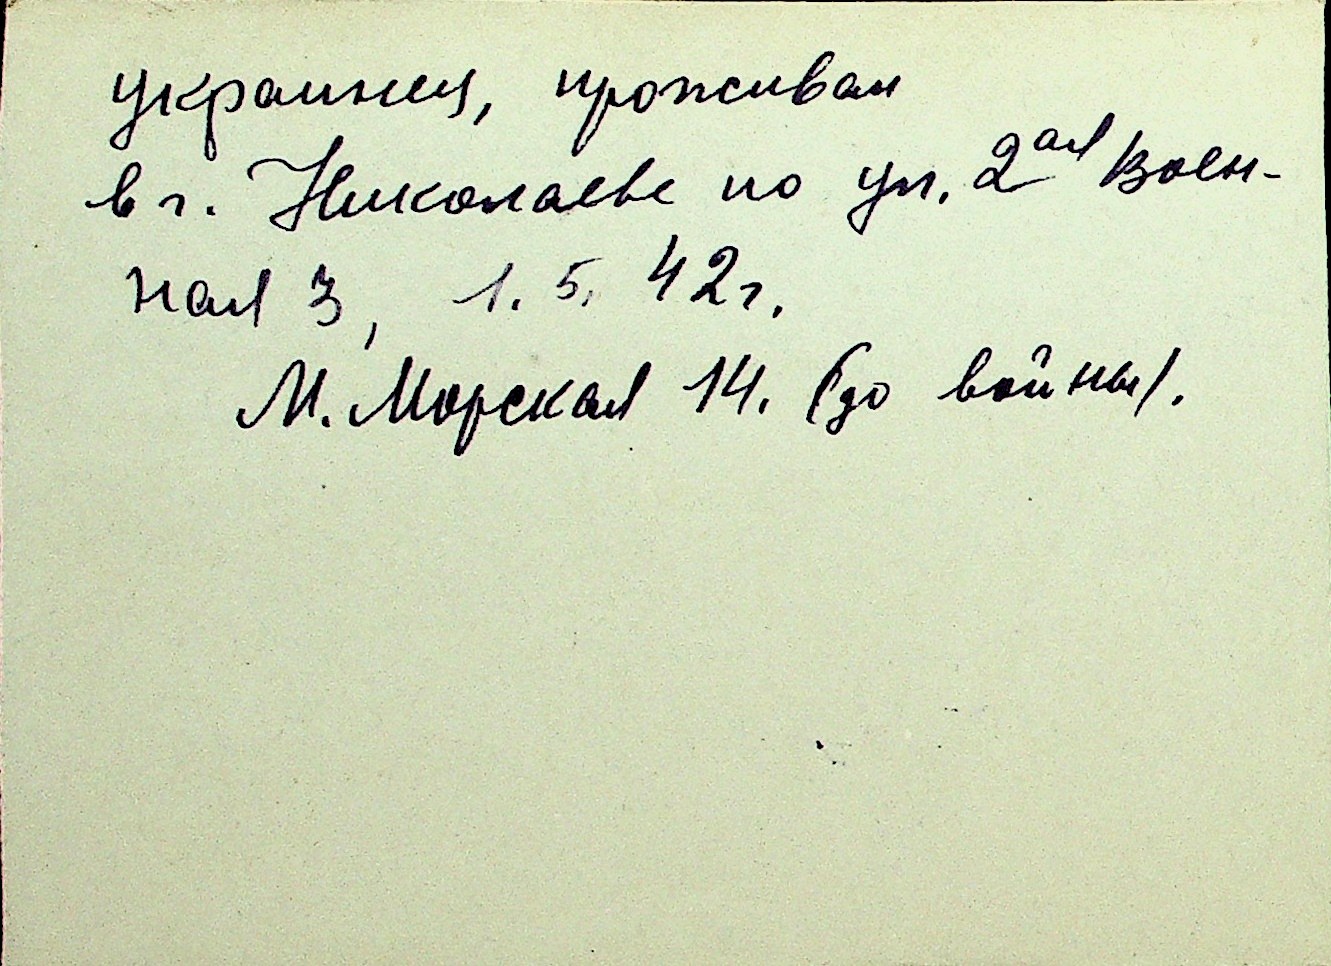 украинец, проживал
в г. Николаеве по ул. 2ая Воен-
ная 3, 1.5.42г.
М. Морская 14. (до войны).